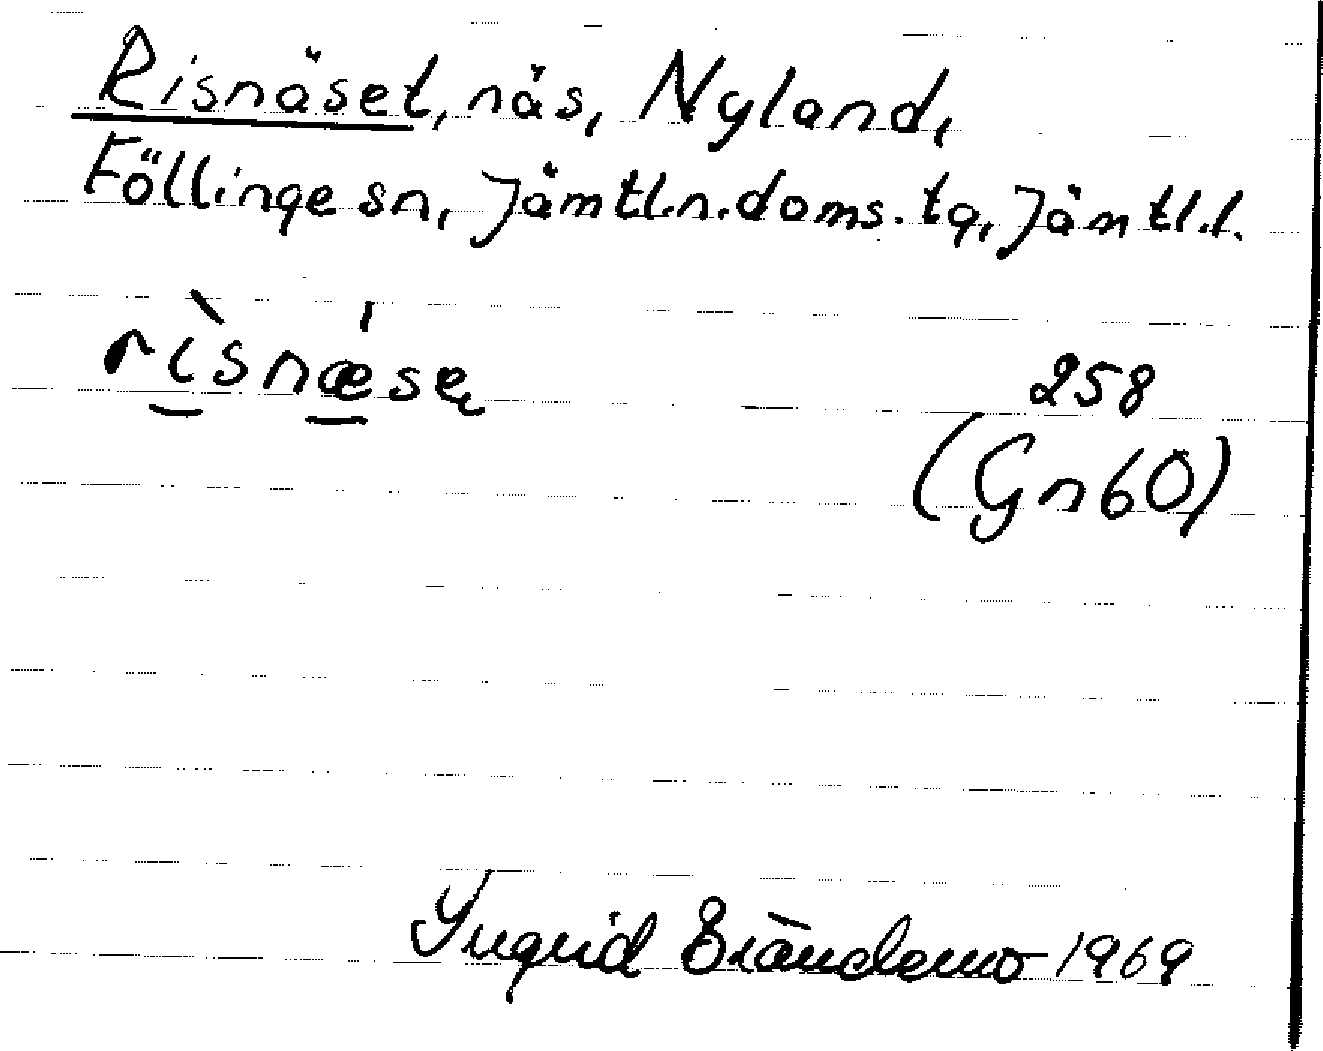 Risnäset, näs, Nyland,
Föllinge sn, Jämtl.n.doms.tg, Jämtl.l.
rı̀snǽsę
258
(Gn60)
Ingrid Brändemo 1969